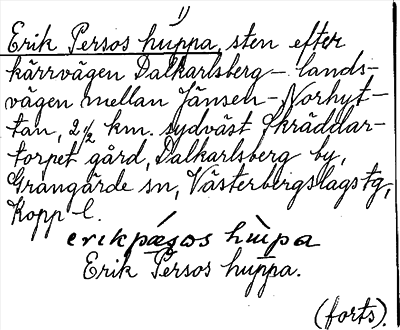 1)
Erik Persos huppa, sten efter
kärrvägen Dalkarlsberg – lands-
vägen mellan Jänsen – Norhyt-
tan, 2 1/2 km. sydväst Skräddar-
torpet gård, Dalkarlsberg by,
Grangärde sn, Västerbergslags tg,
Kopp l.
erikpæșos hùpa
Erik Persos huppa.
(forts).